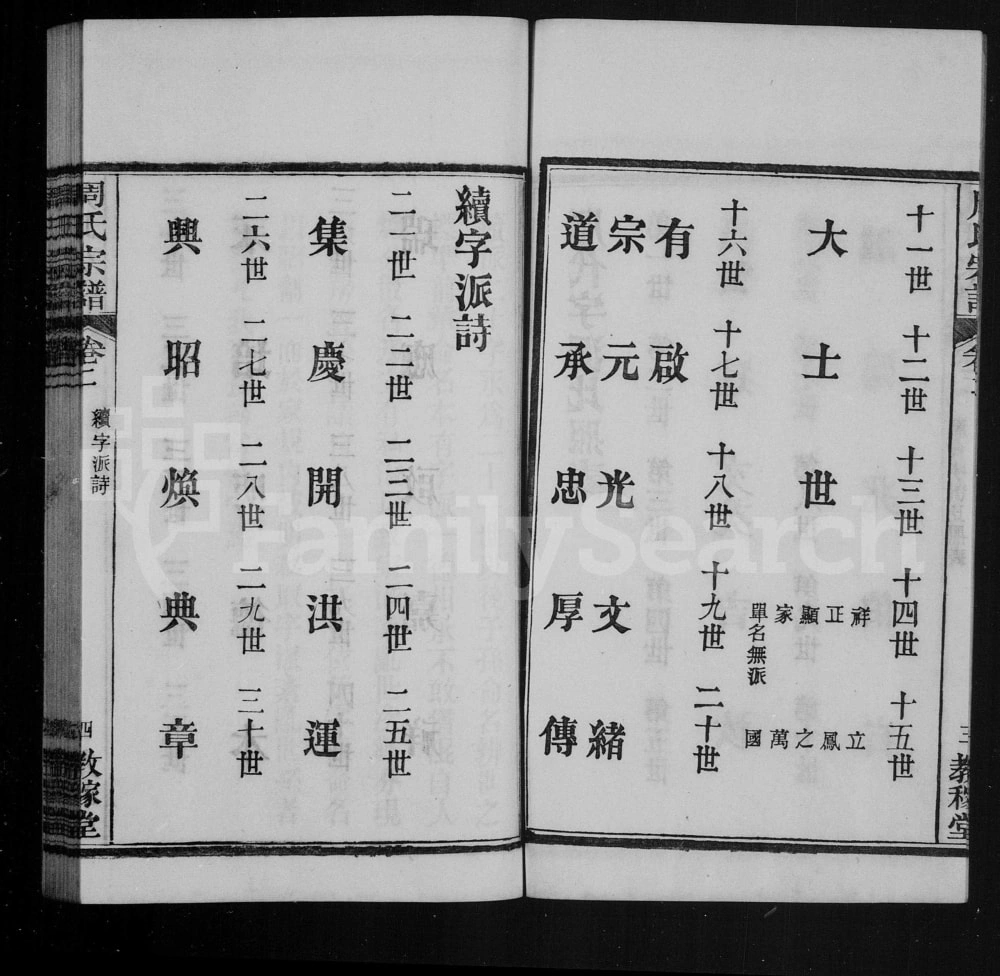 三 教稼堂
十一世 十二世 十三世 十四世 十五世
大 士 世 祥 正 顯 家 單名無派 立 鳳 之 萬 國
十六世 十七世 十八世 十九世 二十世
有 啟
宗 元 光 文 緒
道 承 忠 厚 傳
續字派詩
二一世 二二世 二三世 二四世 二五世
集 慶 開 洪 運
二六世 二七世 二八世 二九世 三十世
興 昭 煥 典 章
周氏宗譜 卷二 續字派詩 四 教稼堂
FamilySearch